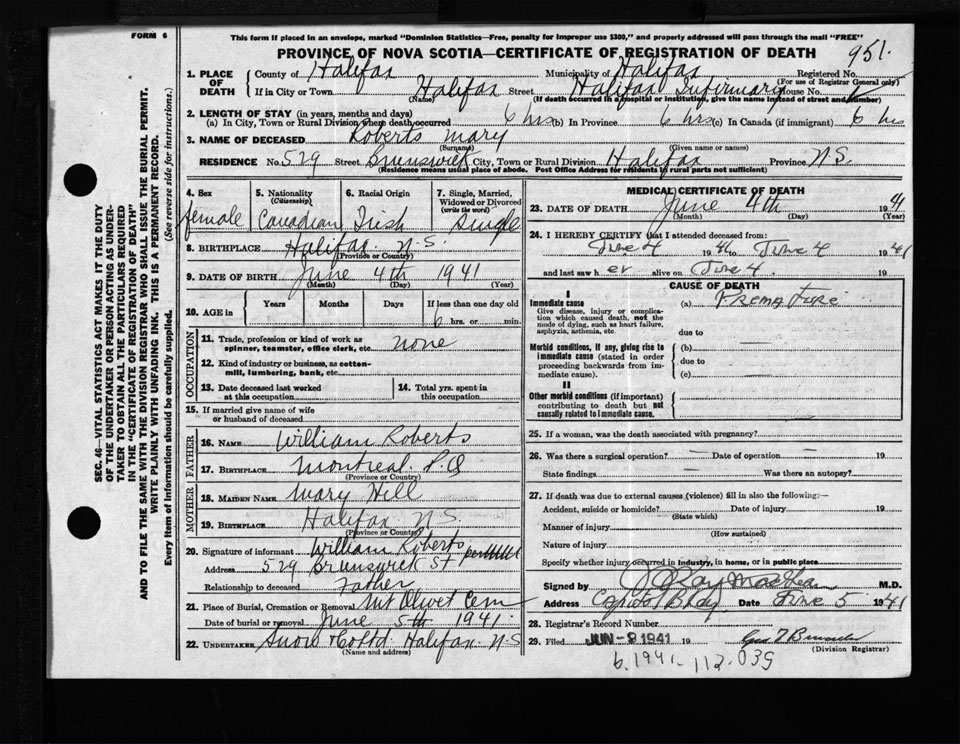 FORM 6
This form if placed in an envelope, marked "Dominion Statistics—Free, penalty for improper use $300," and properly addressed will pass through the mail "FREE"
PROVINCE OF NOVA SCOTIA—CERTIFICATE OF REGISTRATION OF DEATH
951.
1. PLACE OF DEATH
County of Halifax Municipality of Halifax Registered No.
(For use of Registrar General only)
If in City or Town Halifax Street Halifax Infirmary House No.
(Name) (If death occurred in a hospital or institution, give the name instead of street and number)
2. LENGTH OF STAY (in years, months and days)
(a) In City, Town or Rural Division where death occurred 6 hrs (b) In Province 6 hrs (c) In Canada (if immigrant) 6 hrs
3. NAME OF DECEASED Roberts Mary
(Surname) (Given name or names)
RESIDENCE No. 529 Street Brunswick City, Town or Rural Division Halifax Province N.S.
(Residence means usual place of abode. Post Office Address for residents in rural parts not sufficient)
4. Sex
female
5. Nationality (Citizenship)
Canadian
6. Racial Origin
Irish
7. Single, Married, Widowed or Divorced (write the word)
Single
8. BIRTHPLACE Halifax N.S.
(Province or Country)
9. DATE OF BIRTH June 4th 1941
(Month) (Day) (Year)
10. AGE in
Years Months Days If less than one day old
6 hrs. or min.
OCCUPATION
11. Trade, profession or kind of work as spinner, teamster, office clerk, etc. none
12. Kind of industry or business, as cotton-mill, lumbering, bank, etc.
13. Date deceased last worked at this occupation
14. Total yrs. spent in this occupation
15. If married give name of wife or husband of deceased
FATHER
16. NAME William Roberts
17. BIRTHPLACE Montreal. P.Q
(Province or Country)
MOTHER
18. MAIDEN NAME Mary Hill
19. BIRTHPLACE Halifax N.S.
(Province or Country)
20. Signature of informant William Roberts
Address 529 Brunswick St
Relationship to deceased Father
21. Place of Burial, Cremation or Removal Mt Olivet Cem
Date of burial or removal June 5th 1941.
22. UNDERTAKER Snow & Co Ltd. Halifax. N.S
(Name and address)
MEDICAL CERTIFICATE OF DEATH
23. DATE OF DEATH June 4th 194
(Month) (Day) (Year)
24. I HEREBY CERTIFY that I attended deceased from:
June 4 19 to June 4 1941
and last saw h er alive on June 4. 19
CAUSE OF DEATH
I
Immediate cause
Give disease, injury, or complication which caused death, not the mode of dying, such as heart failure, asphyxia, asthenia, etc.
(a) Premature
due to
Morbid conditions, if any, giving rise to immediate cause (stated in order proceeding backwards from immediate cause).
(b) —
due to
(c) —
II
Other morbid conditions (if important) contributing to death but not causally related to immediate cause.
25. If a woman, was the death associated with pregnancy?
26. Was there a surgical operation? — Date of operation — 19
State findings — Was there an autopsy?
27. If death was due to external causes (violence) fill in also the following:—
Accident, suicide or homicide? Date of injury 19
(State which)
Manner of injury
(How sustained)
Nature of injury
Specify whether injury occurred in industry, in home, or in public place
Signed by M.D.
Address Capitol Bldg. Date June 5 1941
28. Registrar's Record Number
29. Filed JUN -9 1941 19
(Division Registrar)
6.1941. 112.039
SEC. 46—VITAL STATISTICS ACT MAKES IT THE DUTY
OF THE UNDERTAKER OR PERSON ACTING AS UNDER-
TAKER TO OBTAIN ALL THE PARTICULARS REQUIRED
IN THE "CERTIFICATE OF REGISTRATION OF DEATH"
AND TO FILE THE SAME WITH THE DIVISION REGISTRAR WHO SHALL ISSUE THE BURIAL PERMIT.
WRITE PLAINLY WITH UNFADING INK. THIS IS A PERMANENT RECORD.
Every item of information should be carefully supplied. (See reverse side for instructions.)